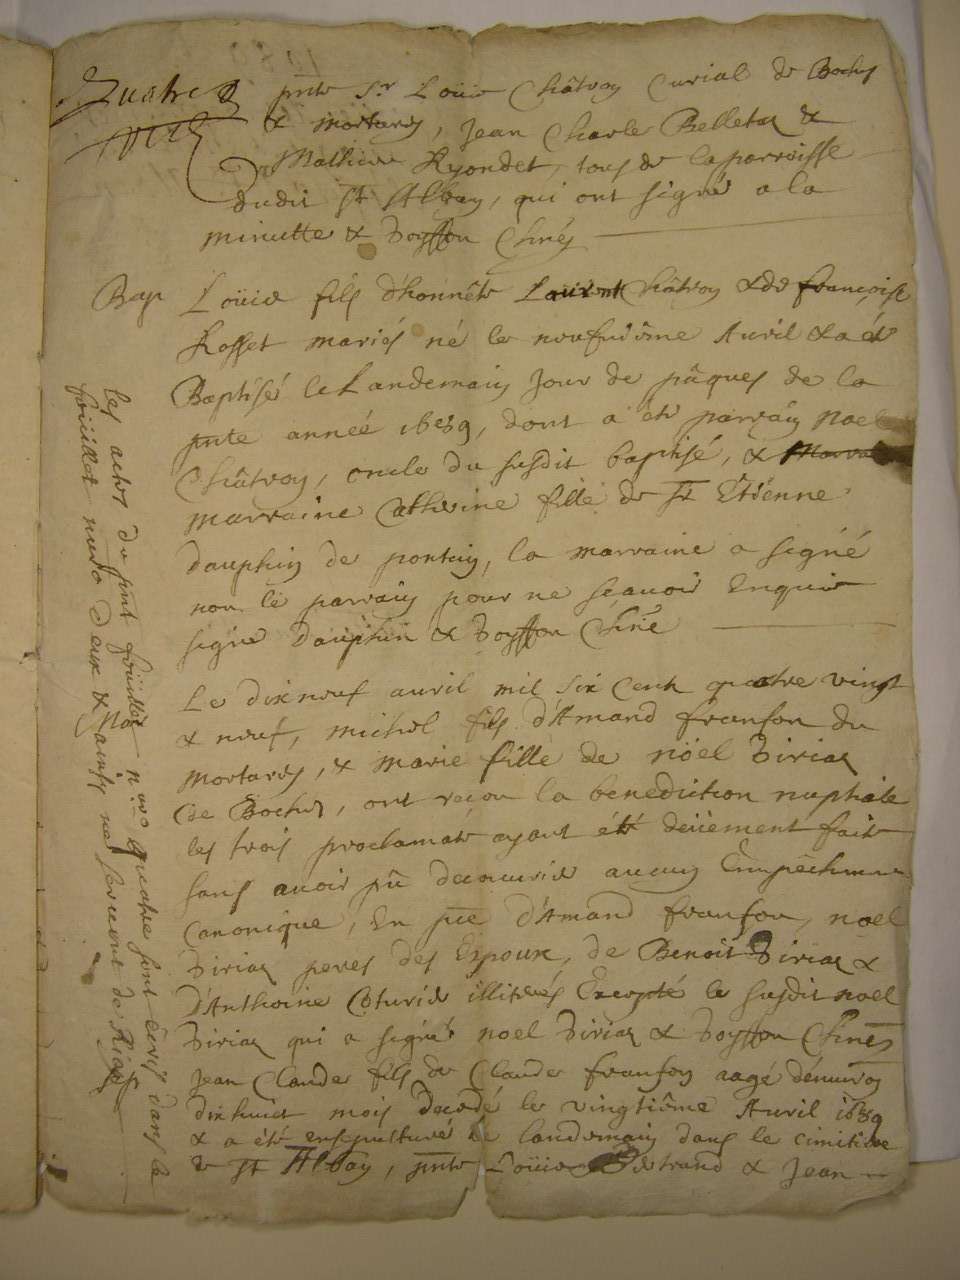 Quatre
pnte Sr Loüis Châtron Curial de Boches
& mortarey, Jean Charle Belletaz &
Mathieu Ryondet, tous de la parroisse
dudit St Alban, qui ont signé a la
minutte & Doysson Chnés
Bap
Loüis fils d'honnête Laurent Châtron & de françoise
Rosset mariés né le neufuiême Auril & a été
Baptisé le Landemain Jour de pâques de la
pnte année 1689, dont a été parrain noel
Châtron, oncle du susdit baptisé, &
marraine Catherine fille de Sr Etiénne
dauphin de pontuy, la marraine a signé
non le parrain pour ne sçauoir Enquis
signé Dauphin & Doysson Chné
Mar
Le dix neuf auril mil six cent quatre vingt
& neuf, michel fils d'Amand franson du
mortarey, & marie fille de nöel Diriaz
de Boches, ont reçeu la benediction nuptiale
les trois proclamats ayant été deüement fait
sans auoir pû decouurir aucun Empêchement
Canonique, En pce d'Amand franson, noel
Diriaz peres des Epoux, de Benoit Diriaz &
d'Anthoine Coturie illiterés Excepté le susdit noel
Diriaz qui a signé noel Diriaz & Doysson Chnés
Jean Claude fils de Claude franson aagé d'enuiron
dixhuict mois decedé le vingtiême Auril 1689
& a été ensepulturé le landemain dans le cimitiere
de St Alban, pnts Loüis Bertrand & Jean
les actes du pnt foüillet nuro quatre sont écris dans le
foüillet nuro deux & ainsy ne seruent de Rien